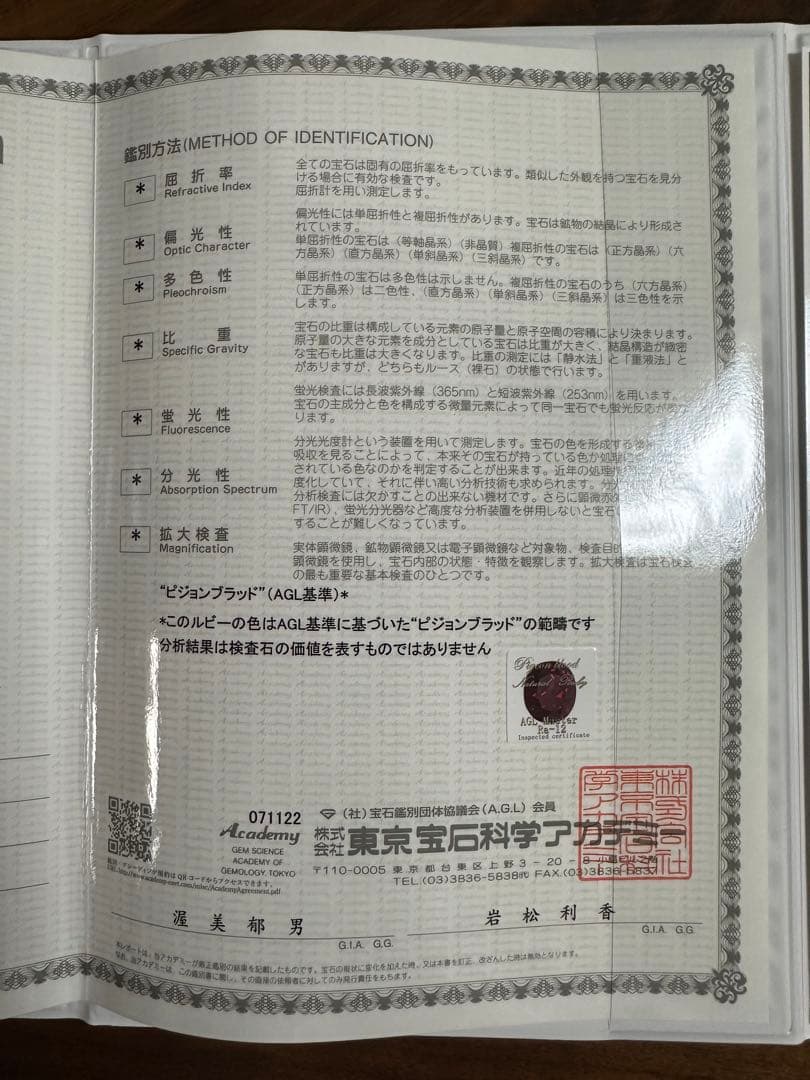 鑑別方法(METHOD OF IDENTIFICATION)
* 屈折率
Refractive Index
全ての宝石は固有の屈折率をもっています。類似した外観を持つ宝石を見分
ける場合に有効な検査です。
屈折計を用い測定します。
* 偏光性
Optic Character
偏光性には単屈折性と複屈折性があります。宝石は鉱物の結晶により形成さ
れています。
単屈折性の宝石は(等軸晶系)(非晶質)複屈折性の宝石は(正方晶系)(六
方晶系)(直方晶系)(単斜晶系)(三斜晶系)です。
* 多色性
Pleochroism
単屈折性の宝石は多色性は示しません。複屈折性の宝石のうち(六方晶系)
(正方晶系)は二色性、(直方晶系)(単斜晶系)(三斜晶系)は三色性を示
します。
* 比重
Specific Gravity
宝石の比重は構成している元素の原子量と原子空間の容積により決まります。
原子量の大きな元素を成分としている宝石は比重が大きく、結晶構造が緻密
な宝石も比重は大きくなります。比重の測定には「静水法」と「重液法」と
がありますが、どちらもルース(裸石)の状態で行います。
* 蛍光性
Fluorescence
蛍光検査には長波紫外線(365nm)と短波紫外線(253nm)を用います。
宝石の主成分と色を構成する微量元素によって同一宝石でも蛍光反応が
ります。
* 分光性
Absorption Spectrum
分光光度計という装置を用いて測定します。宝石の色を形成する
吸収を見ることによって、本来その宝石が持っている色か処理に
されている色なのかを判定することが出来ます。近年の処理
度化していて、それに伴い高い分析技術も求められます。分
分析検査には欠かすことの出来ない機材です。さらに顕微赤外
FT/IR)、蛍光分光器など高度な分析装置を併用しないと宝石
することが難しくなっています。
* 拡大検査
Magnification
実体顕微鏡、鉱物顕微鏡又は電子顕微鏡など対象物、検査目的
顕微鏡を使用し、宝石内部の状態・特徴を観察します。拡大検査は宝石検査
の最も重要な基本検査のひとつです。
“ピジョンブラッド”(AGL基準)*
*このルビーの色はAGL基準に基づいた“ピジョンブラッド”の範疇です
分析結果は検査石の価値を表すものではありません
Pigeon Blood
Natural Ruby
AGL Master
Ra-12
Inspected certificate
071122
Academy
GEM SCIENCE
ACADEMY OF
GEMOLOGY. TOKYO
(社)宝石鑑別団体協議会(A.G.L)会員
株式会社 東京宝石科学アカデミー
〒110-0005 東京都台東区上野3-20-8
TEL.(03)3836-5838代 FAX.(03)3836-5837
鑑別・グレーディング規約はQRコードからアクセスできます。
渥美郁男
G.I.A. G.G.
岩松利香
G.I.A. G.G.
本レポートは、当アカデミーが厳正鑑別の結果を記載したものです。宝石の現状に変化を加えた時、又は本書を訂正、改ざんした時は無効となります。
なお、当アカデミーは、この鑑別書に関し、その直接の依頼者に対してのみ発行責任をもちます。